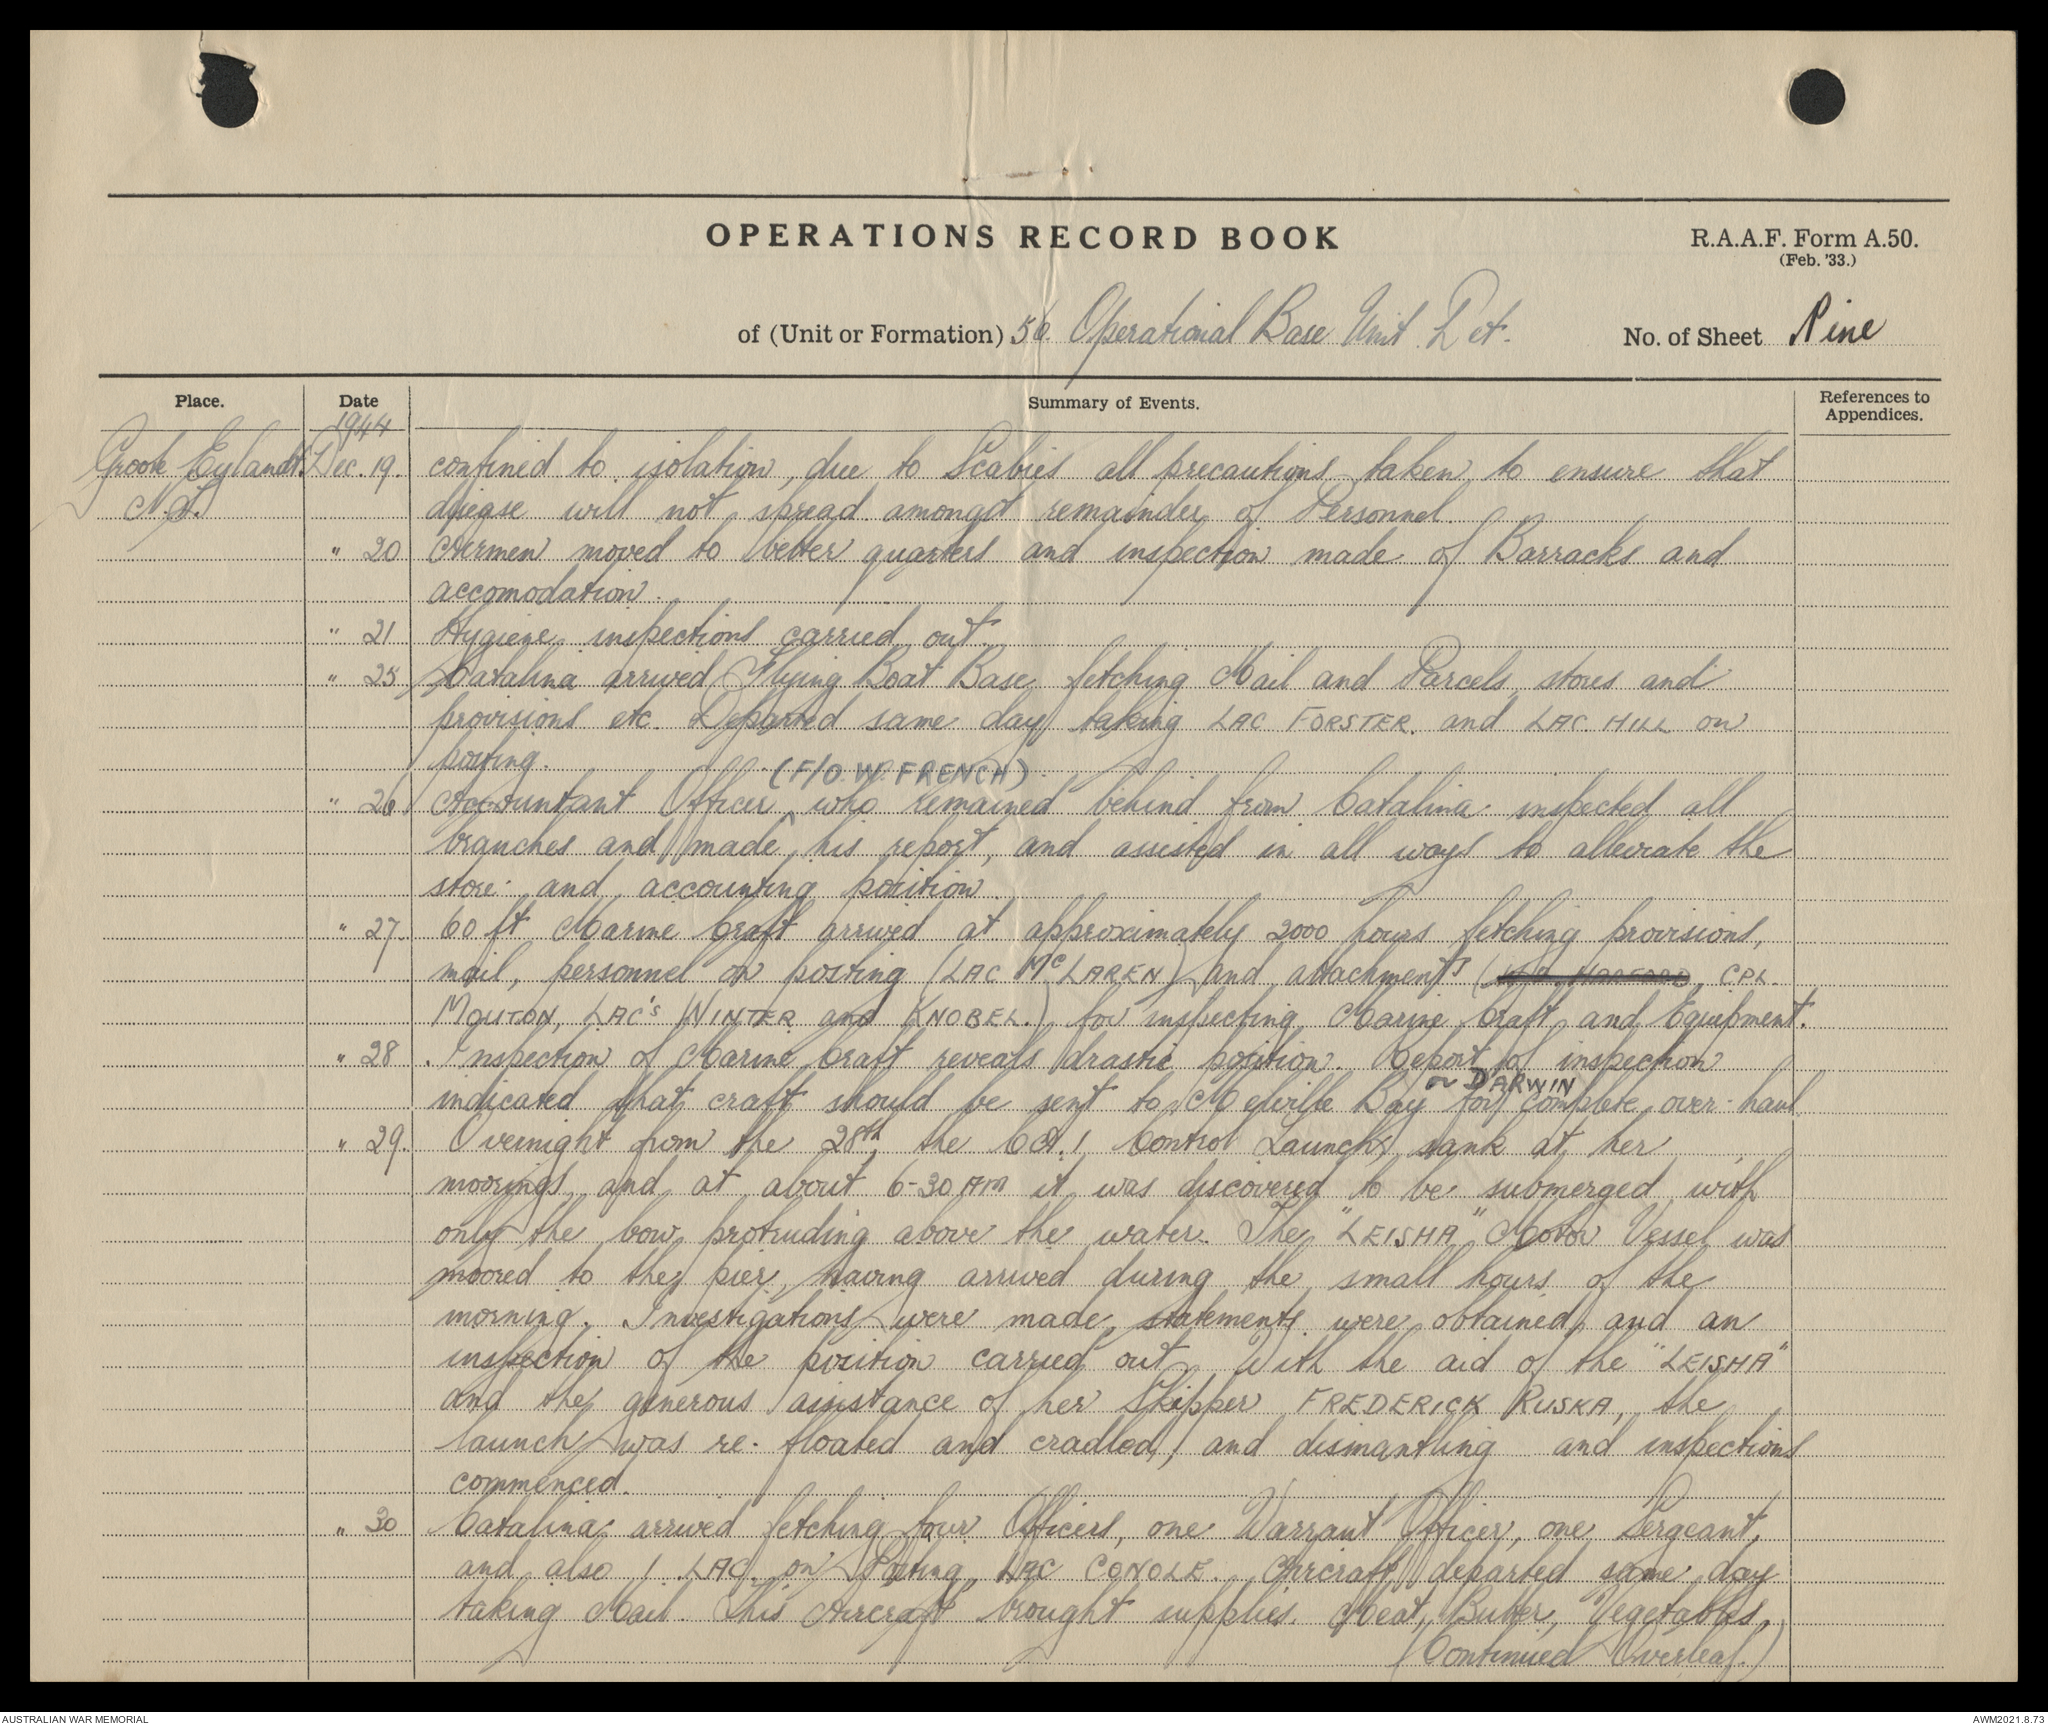 OPERATIONS RECORD BOOK
R.A.A.F. Form A.50.
(Feb. '33.)
of (Unit or Formation) 56. Operational Base Unit Det.
No. of Sheet Nine
Place.
Date
Summary of Events.
References to
Appendices.
1944
Groote Eylandt. Dec. 19. confined to isolation, due to Scabies all precautions taken to ensure that
N.T. disease will not spread amongst remainder of Personnel.
" 20 Airmen moved to better quarters and inspection made of Barracks and
accomodation.
" 21 Hygiene inspections carried out.
" 25 Catalina arrived Flying Boat Base fetching Mail and Parcels, stores and
provisions etc. Departed same day taking LAC FORSTER. and LAC. HILL on
posting.
(F/O. W. FRENCH)
" 26. Accountant Officer ^ who remained behind from Catalina inspected all
branches and made his report, and assisted in all ways to alleviate the
store and accounting position.
" 27. 60 ft Marine Craft arrived at approximately 2000 hours fetching provisions,
mail, personnel on posting (LAC McLAREN) and attachments ( CPL.
MOUTON, LAC's WINTER and KNOBEL.) for inspecting Marine Craft and Equipment.
" 28 . Inspection of Marine Craft reveals drastic position. Report of inspection
or DARWIN
indicated that craft should be sent to Melville Bay for complete over-haul
" 29. Overnight from the 28th, the CA.1 Control Launch, sank at her
moorings, and at about 6-30 AM it was discovered to be submerged with
only the bow protruding above the water. The "LEISHA" Motor Vessel was
moored to the pier, having arrived during the small hours of the
morning. Investigations were made, statements were obtained, and an
inspection of the position carried out. With the aid of the "LEISHA"
and the generous assistance of her Skipper FREDERICK RUSKA, the
launch was re-floated and cradled, and dismantling and inspections
commenced.
" 30 Catalina arrived fetching four Officers, one Warrant Officer, one Sergeant,
and also 1 LAC. on Posting, LAC CONOLE. Aircraft departed same day
taking Mail. This Aircraft brought supplies. Meat, Butter, Vegetables,
(Continued Overleaf.)
AUSTRALIAN WAR MEMORIAL
AWM2021.8.73